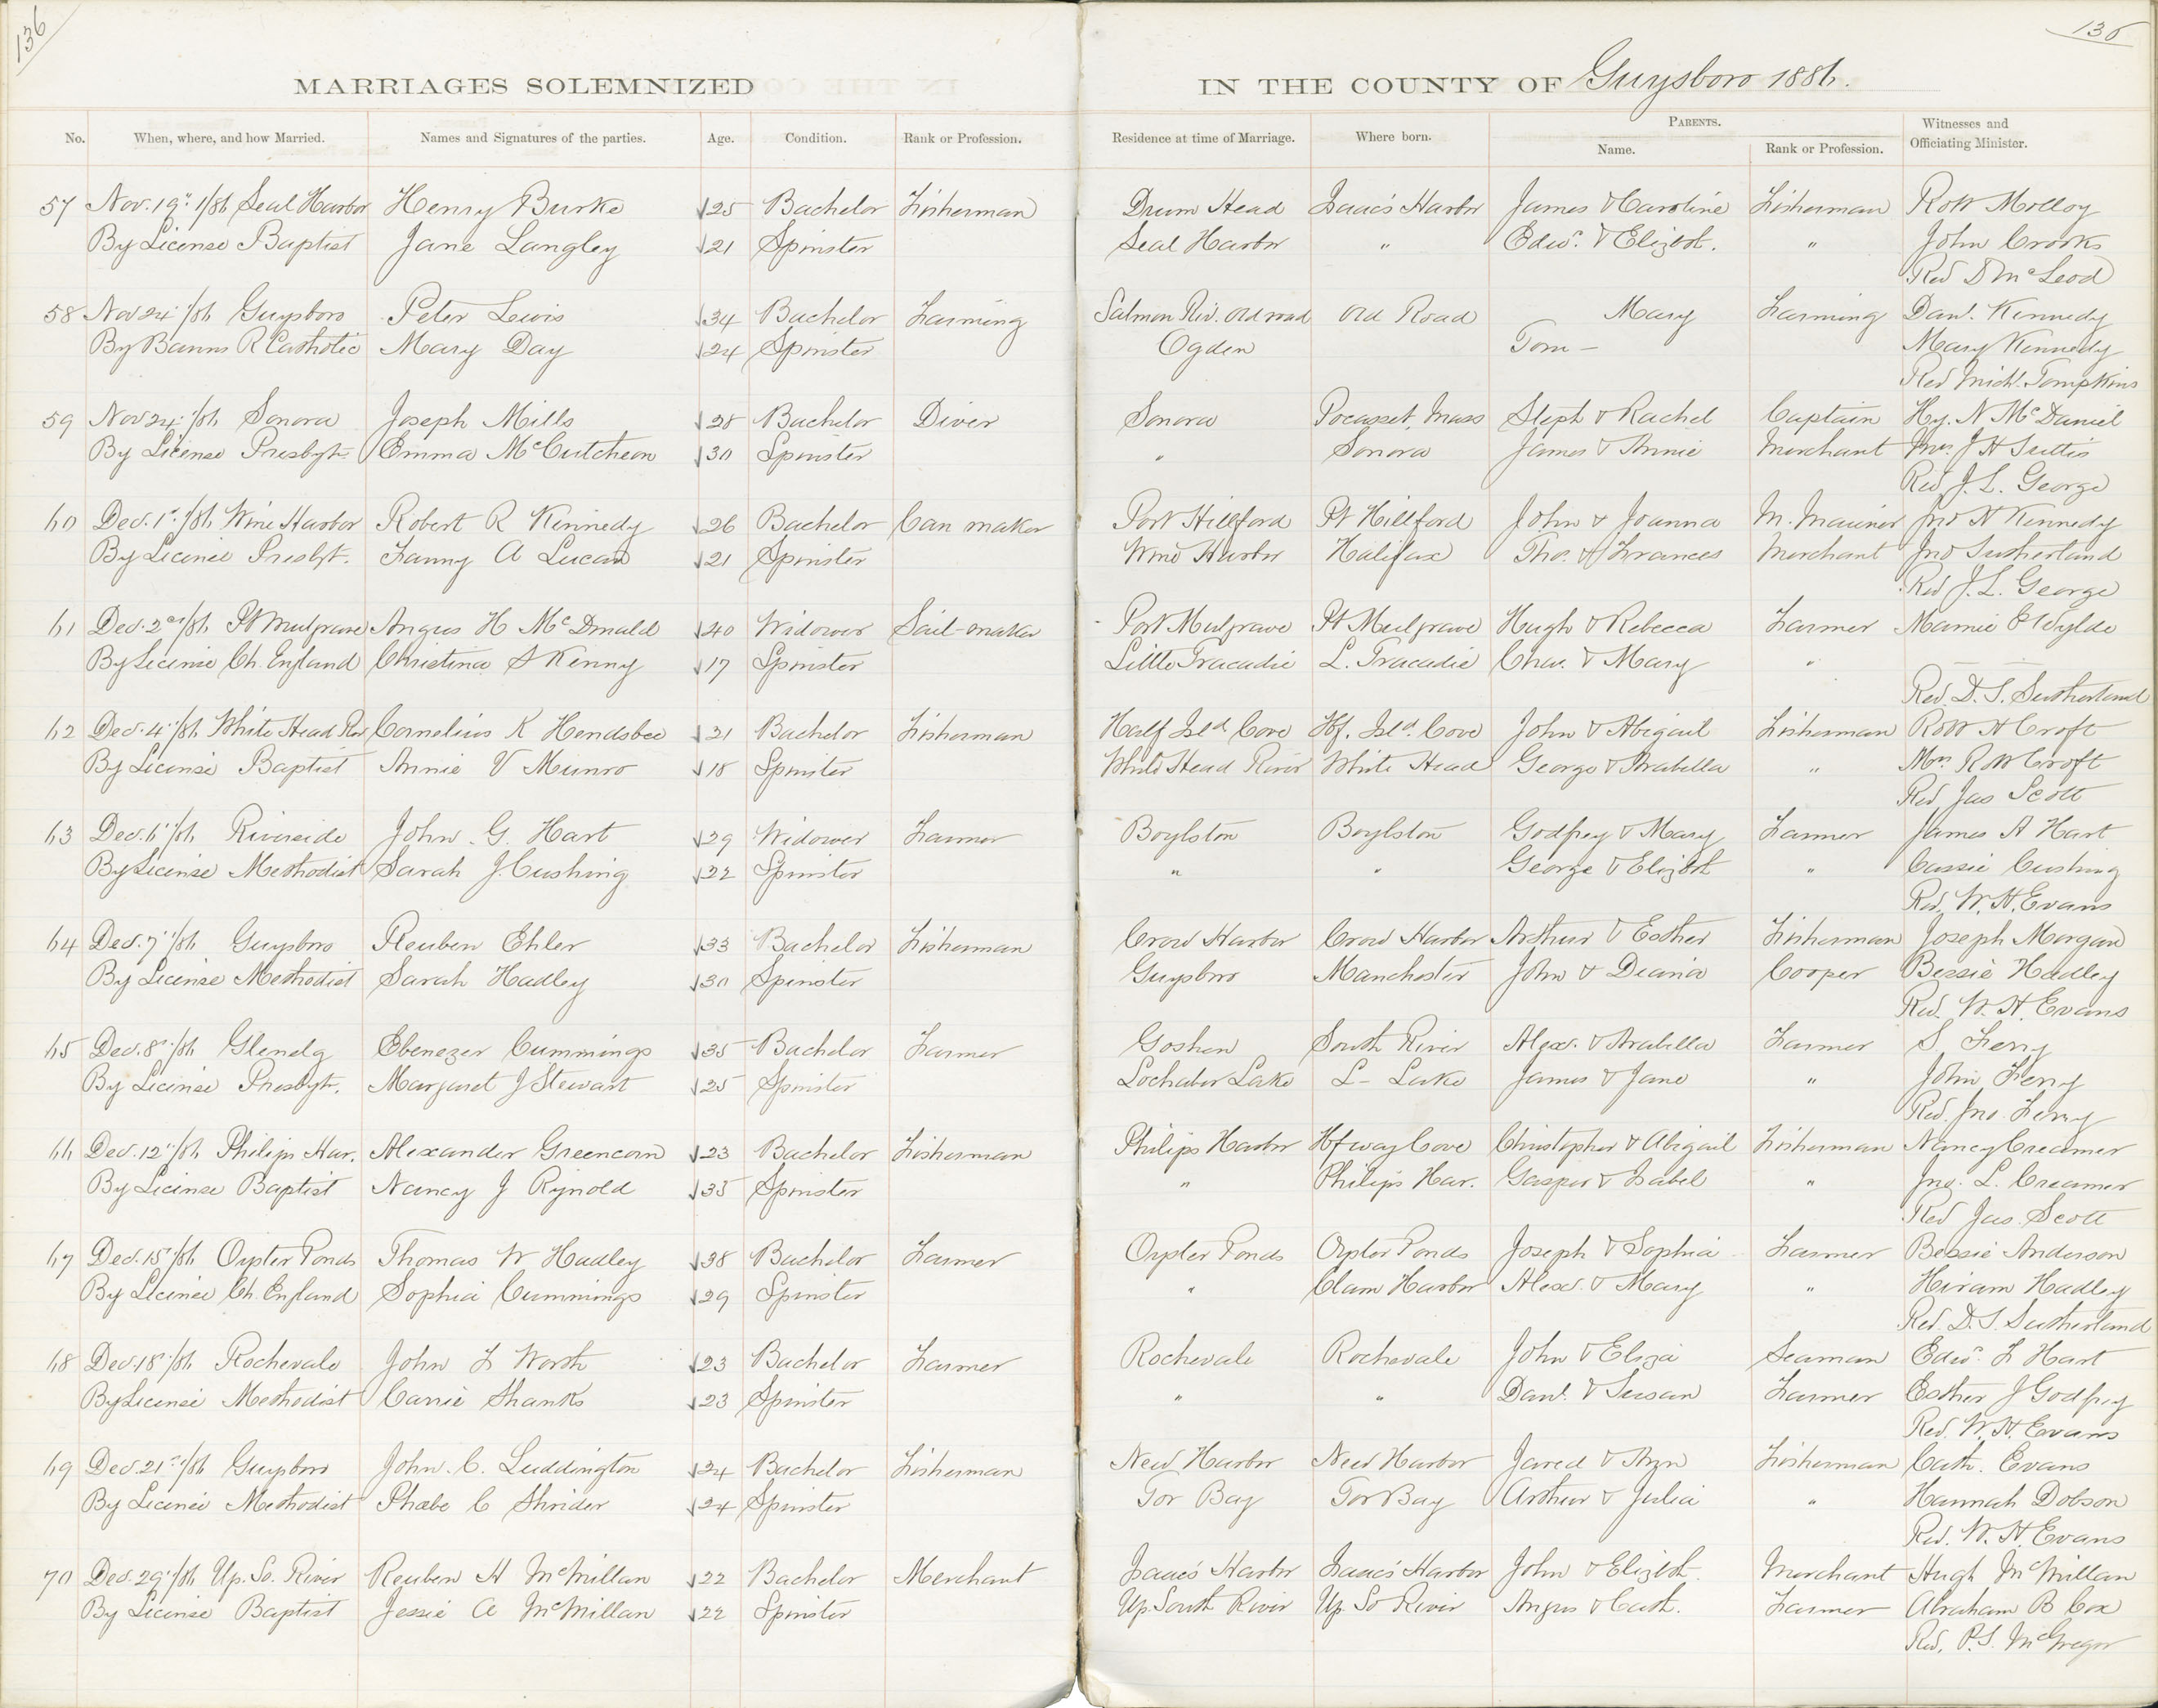 136
136
MARRIAGES SOLEMNIZED IN THE COUNTY OF Guysboro 1886.
No. When, where, and how Married. Names and Signatures of the parties. Age. Condition. Rank or Profession. Residence at time of Marriage. Where born. PARENTS. Name. Rank or Profession. Witnesses and Officiating Minister.
57 Nov. 19th /86 Seal Harbor Henry Burke 25 Bachelor Fisherman Drum Head Isaac's Harbor James & Caroline Fisherman Robt Molloy
By License Baptist Jane Langley 21 Spinster Seal Harbor " Edwd. & Elizbth. " John Crooks
Rev D McLeod
58 Nov 24th /86 Guysboro Peter Lewis 34 Bachelor Farming Salmon Riv. Old road Old Road Mary Farming Danl. Kennedy
By Banns R Catholic Mary Day 24 Spinster Ogden Tom — Mary Kennedy
Rev Michl. Tompkins
59 Nov 24th /86 Sonora Joseph Mills 28 Bachelor Diver Sonora Pocasset, Mass Steph & Rachel Captain Hy. N McDaniel
By License Presbyt. Emma McCutcheon 30 Spinster " Sonora James & Annie Merchant J H Suttis
Rev J. L. George
60 Dec. 1st /86 Wine Harbor Robert R Kennedy 26 Bachelor Can maker Port Hillford Pt Hillford John & Joanna M. Mariner Jno N Kennedy
By License Presbyt. Fanny A Lucas 21 Spinster Wine Harbor Halifax Tho. & Frances Merchant Jno Sutherland
Rev J. L. George
61 Dec. 2nd /86 Pt Mulgrave Angus H McDonald 40 Widower Sail-maker Port Mulgrave Pt Mulgrave Hugh & Rebecca Farmer Mamie E Wylde
By License Ch. England Christina S Kenny 17 Spinster Little Tracadie L. Tracadie Chas. & Mary " — —
Rev. D. S. Sutherland
62 Dec. 4th /86 White Head Riv Cornelius K Hendsbee 21 Bachelor Fisherman Half Isld Cove Hf. Isld. Cove John & Abigail Fisherman Robt H Croft
By License Baptist Annie V Munro 18 Spinster White Head River White Head George & Arabella " Mrs Robt Croft
Rev Jas Scott
63 Dec. 6th /86 Riverside John G. Hart 29 Widower Farmer Boylston Boylston Godfrey & Mary Farmer James A Hart
By License Methodist Sarah J Cushing 22 Spinster " " George & Elizbth " Cassie Cushing
Rev. W. H. Evans
64 Dec. 7th /86 Guysboro Reuben Ehler 33 Bachelor Fisherman Crow Harbor Crow Harbor Arthur & Esther Fisherman Joseph Morgan
By License Methodist Sarah Hadley 30 Spinster Guysboro Manchester John & Diania Cooper Bessie Hadley
Rev. W. H. Evans
65 Dec. 8th /86 Glenelg Ebenezer Cummings 35 Bachelor Farmer Goshen South River Alexr. & Arabella Farmer S Ferry
By License Presbyt. Margaret J Stewart 25 Spinster Lochaber Lake L— Lake James & Jane " John Ferry
Rev. Jno. Ferry
66 Dec. 12th /86 Philips Har. Alexander Greencorn 23 Bachelor Fisherman Philips Harbor Hfway Cove Christopher & Abigail Fisherman Nancy Creamer
By License Baptist Nancy J Rynold 35 Spinster " Philips Har. Gasper & Isabel " Jno. L. Creamer
Rev Jas. Scott
67 Dec. 15th /86 Oyster Ponds Thomas W Hadley 38 Bachelor Farmer Oyster Ponds Oyster Ponds Joseph & Sophia Farmer Bessie Anderson
By License Ch. England Sophia Cummings 29 Spinster " Clam Harbor Alexr. & Mary " Hiram Hadley
Rev. D. S. Sutherland
68 Dec. 18th /86 Rochevale John F Worth 23 Bachelor Farmer Rochevale Rochevale John & Eliza Seaman Edwd. F Hart
By License Methodist Carrie Shanks 23 Spinster " " Danl. & Susan Farmer Esther J Godfrey
Rev. W. H. Evans
69 Dec. 21st /86 Guysboro John. C. Luddington 24 Bachelor Fisherman New Harbor New Harbor Jared & Fisherman Cath. Evans
By License Methodist Phœbe C Shrider 24 Spinster Tor Bay Tor Bay Arthur & Julia " Hannah Dobson
Rev. W. H. Evans
70 Dec. 29th /86 Up. So. River Reuben H McMillan 22 Bachelor Merchant Isaac's Harbor Isaac's Harbor John & Elizbth. Merchant Hugh McMillan
By License Baptist Jessie A McMillan 22 Spinster Up. South River Up. So River Angus & Cath. Farmer Abraham B Cox
Rev. P. S. McGregor